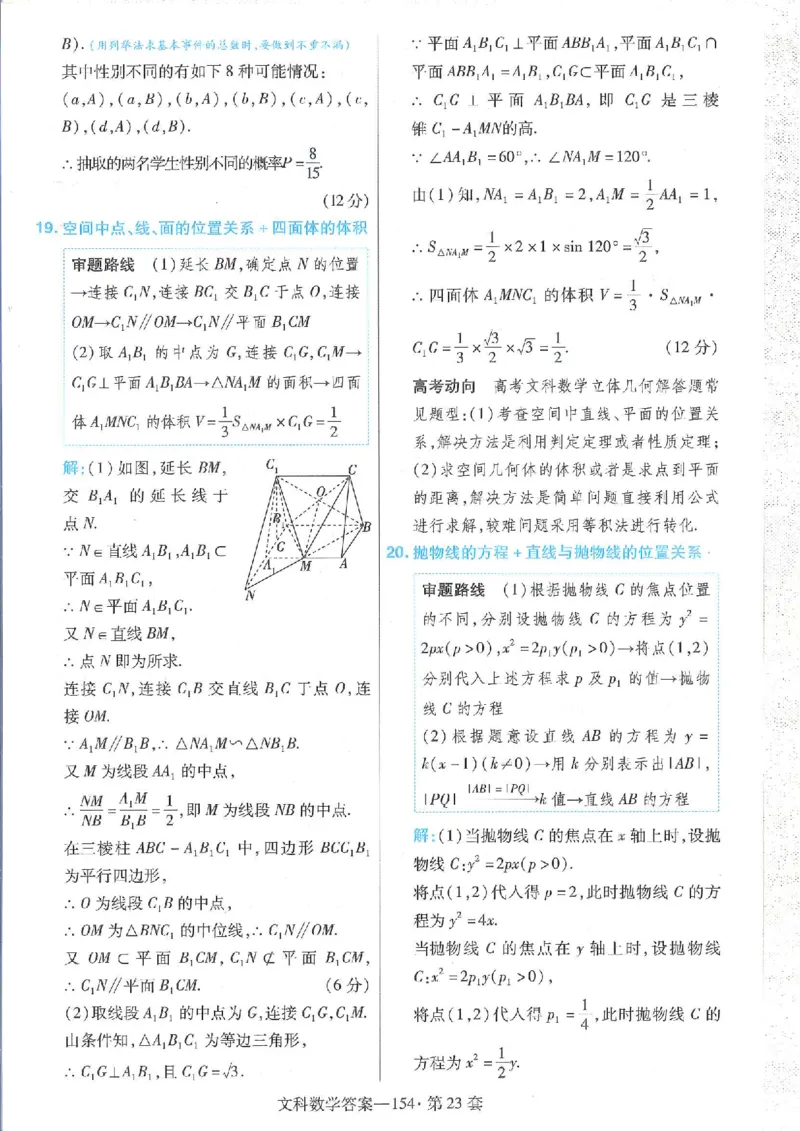 B).(用列举法求基本事件的总数时,要做到不重不漏)
其中性别不同的有如下8种可能情况:
(a,A),(a,B),(b,A),(b,B),(c,A),(c,
B),(d,A),(d,B).
∴抽取的两名学生性别不同的概率P=8/15.
(12分)
19.空间中点、线、面的位置关系+四面体的体积
审题路线 (1)延长BM,确定点N的位置
→连接C₁N,连接BC₁交B₁C于点O,连接
OM→C₁N∥OM→C₁N∥平面B₁CM
(2)取A₁B₁的中点为G,连接C₁G,C₁M→
C₁G⊥平面A₁B₁BA→△NA₁M的面积→四面
体A₁MNC₁的体积V=1/3S△NA₁M×C₁G=1/2
解:(1)如图,延长BM,
交B₁A₁的延长线于
点N.
∵N∈直线A₁B₁,A₁B₁⊂
平面A₁B₁C₁,
∴N∈平面A₁B₁C₁.
又N∈直线BM,
∴点N即为所求.
C₁
C
O
B₁
B
G
A₁
M
A
N
连接C₁N,连接C₁B交直线B₁C于点O,连
接OM.
∵A₁M∥B₁B,∴△NA₁M∽△NB₁B.
又M为线段AA₁的中点,
∴NM/NB=A₁M/B₁B=1/2,即M为线段NB的中点.
在三棱柱ABC-A₁B₁C₁中,四边形BCC₁B₁
为平行四边形,
∴O为线段C₁B的中点,
∴OM为△BNC₁的中位线,∴C₁N∥OM.
又OM⊂平面B₁CM,C₁N⊄平面B₁CM,
∴C₁N∥平面B₁CM. (6分)
(2)取线段A₁B₁的中点为G,连接C₁G,C₁M.
由条件知,△A₁B₁C₁为等边三角形,
∴C₁G⊥A₁B₁,且C₁G=√3.
∵平面A₁B₁C₁⊥平面ABB₁A₁,平面A₁B₁C₁∩
平面ABB₁A₁=A₁B₁,C₁G⊂平面A₁B₁C₁,
∴C₁G⊥平面A₁B₁BA,即C₁G是三棱
锥C₁-A₁MN的高.
∵∠AA₁B₁=60°,∴∠NA₁M=120°.
由(1)知,NA₁=A₁B₁=2,A₁M=1/2AA₁=1,
∴S△NA₁M=1/2×2×1×sin 120°=√3/2,
∴四面体A₁MNC₁的体积V=1/3·S△NA₁M·
C₁G=1/3×√3/2×√3=1/2. (12分)
高考动向 高考文科数学立体几何解答题常
见题型:(1)考查空间中直线、平面的位置关
系,解决方法是利用判定定理或者性质定理;
(2)求空间几何体的体积或者是求点到平面
的距离,解决方法是简单问题直接利用公式
进行求解,较难问题采用等积法进行转化.
20.抛物线的方程+直线与抛物线的位置关系
审题路线 (1)根据抛物线C的焦点位置
的不同,分别设抛物线C的方程为y²=
2px(p>0),x²=2p₁y(p₁>0)→将点(1,2)
分别代入上述方程求p及p₁的值→抛物
线C的方程
(2)根据题意设直线AB的方程为y=
k(x-1)(k≠0)→用k分别表示出|AB|,
|PQ| |AB|=|PQ|→k值→直线AB的方程
解:(1)当抛物线C的焦点在x轴上时,设抛
物线C:y²=2px(p>0).
将点(1,2)代入得p=2,此时抛物线C的方
程为y²=4x.
当抛物线C的焦点在y轴上时,设抛物线
C:x²=2p₁y(p₁>0),
将点(1,2)代入得p₁=1/4,此时抛物线C的
方程为x²=1/2y.
文科数学答案—154·第23套